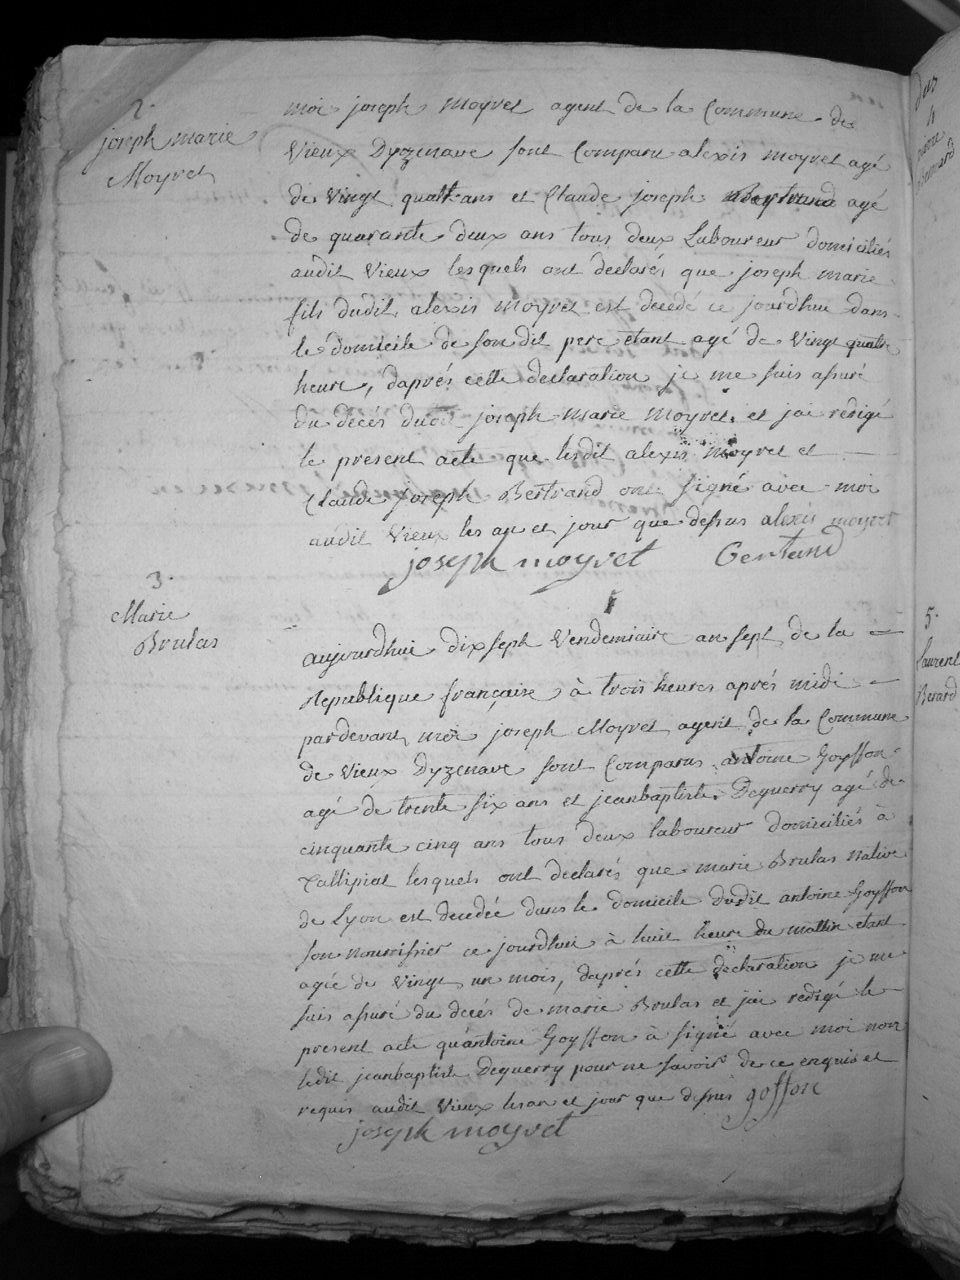 2.
joseph marie
Moyret
moi joseph moyret agent de la Commune de
Vieux Dyzenave sont Comparu alexis moyret agé
de Vingt quatt ans et Claude joseph agé
de quarante deux ans tous deux Laboureur domiciliés
audit Vieux lesquels ont declarés que joseph marie
fils dudit alexis moyret est decedé ce jourdhui dans
le domicile de son dit pere etant agé de Vingt quatre
heure, daprés cette declaration je me suis assuré
du decés dudit joseph marie moyret, et jai redigé
le present acte que lesdit alexis moyret et
Claude joseph Bertrand ont signé avec moi
audit Vieux les an et jour que dessus alexis moyret
joseph moyret
3.
Marie
Brulas
aujourdhui dix sept Vendemiaire an sept de la
Republique française à trois heures aprés midi
pardevant moi joseph Moyret agent de la Commune
de Vieux Dyzenave sont Comparus antoine Goyffon
agé de trente six ans et jeanbaptiste Deguerry agé de
cinquante cinq ans tous deux laboureur domiciliés à
lesquels ont declarés que marie Brulas Native
de Lyon est decedée dans le domicile dudit antoine Goyffon
son nourrisier ce jourdhui à huit heure du mattin etant
agée de Vingt un mois, daprés cette declaration je me
suis assuré du decés de marie Brulas et jai redigé le
present acte quantoine Goyffon à signé avec moi non
ledit jeanbaptiste Deguerry pour ne savoir de ce enquis et
requis audit Vieux les an et jour que dessus goffon
joseph moyret
5.
laurent
Berard